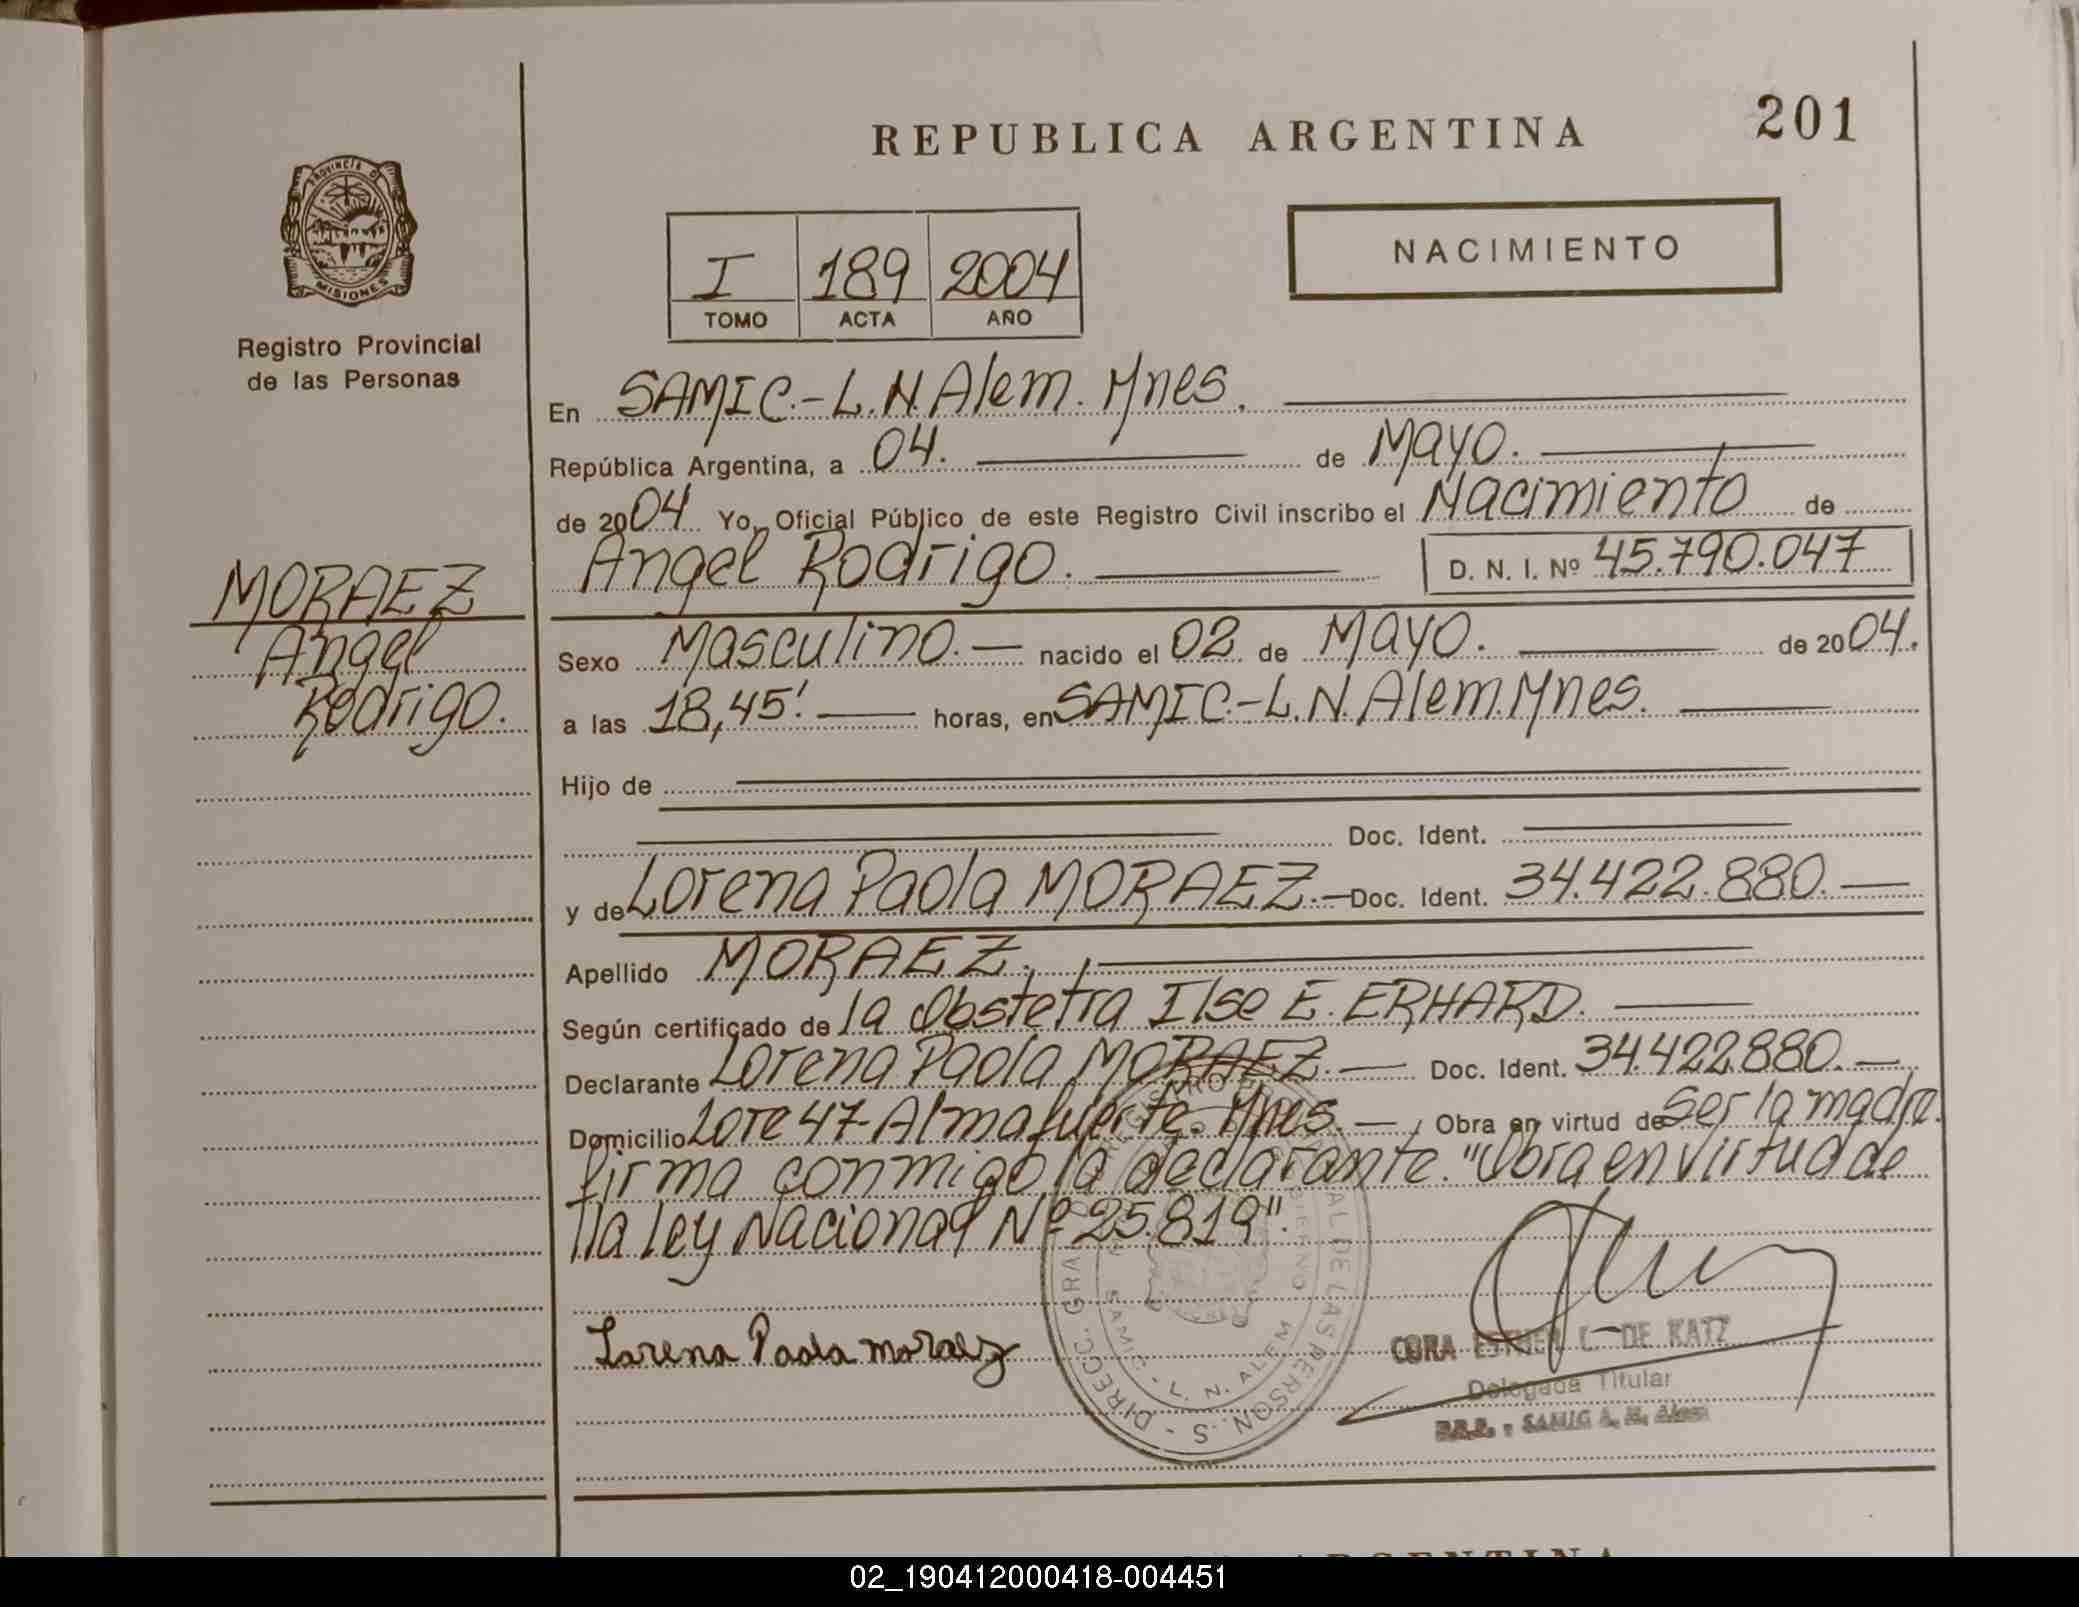 REPUBLICA ARGENTINA
201
PROVINCIA DE
MISIONES
Registro Provincial
de las Personas
I 189 2004
TOMO ACTA AÑO
NACIMIENTO
En SAMIC.-L.N.Alem. Mnes.
República Argentina, a 04. de MAYO.
de 2004 Yo, Oficial Público de este Registro Civil inscribo el Nacimiento de
Angel Rodrigo. D. N. I. Nº 45.790.047
MORAEZ
Angel
Rodrigo.
Sexo Masculino.- nacido el 02 de MAYO. de 2004.
a las 18,45'. horas, en SAMIC.-L.N.Alem.Mnes.
Hijo de
Doc. Ident.
y de Lorena Paola MORAEZ.- Doc. Ident. 34.422.880.-
Apellido MORAEZ.
Según certificado de la Obstetra Ilse E. ERHARD.
Declarante Lorena Paola MORAEZ.- Doc. Ident. 34.422.880.-
Domicilio Lote 47-Almafuerte. Mnes.- Obra en virtud de ser la madre.
firma conmigo la declarante. "Obra en virtud de
la ley Nacional Nº 25.819".
Lorena Paola moraez
CORA ESTHER L. DE KATZ
Delegada Titular
SAMIC L. N. Alem
02_190412000418-004451